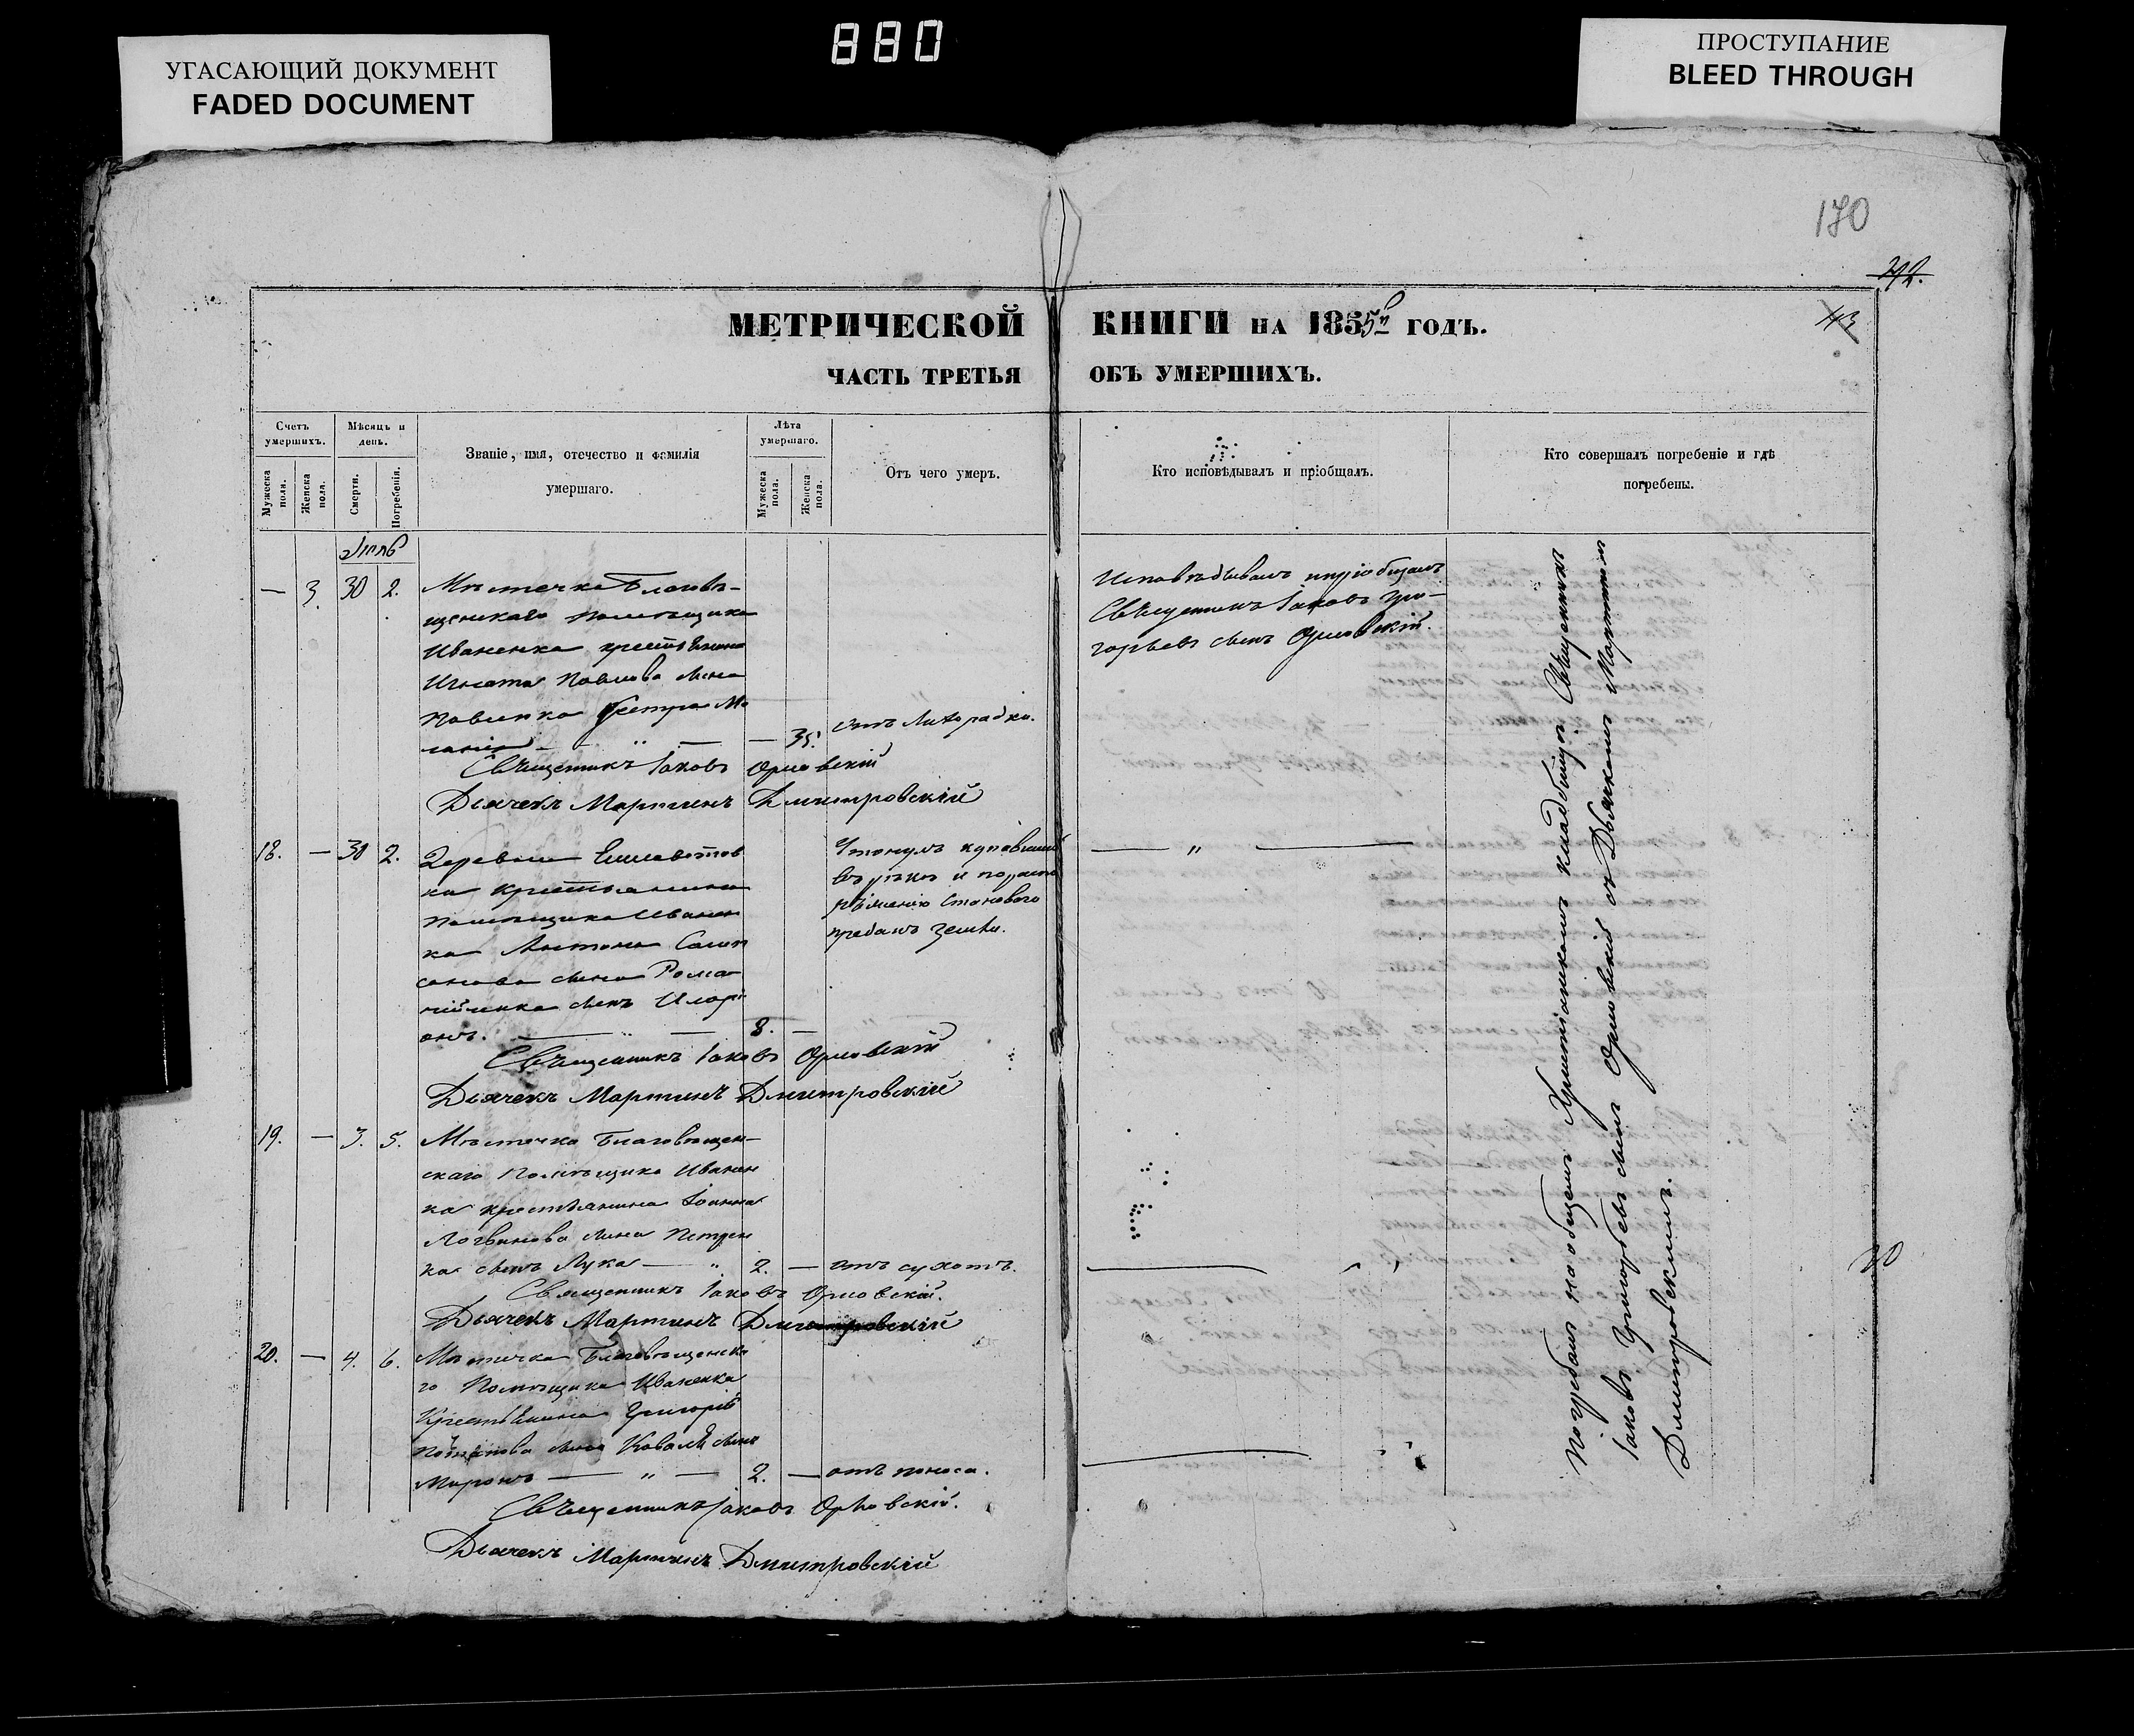 880
УГАСАЮЩИЙ ДОКУМЕНТ
FADED DOCUMENT
ПРОСТУПАНИЕ
BLEED THROUGH
170
42.
43
МЕТРИЧЕСКОЙ КНИГИ НА 1855й ГОДЪ.
ЧАСТЬ ТРЕТЬЯ ОБЪ УМЕРШИХЪ.
Счетъ умершихъ.
Мужеска пола.
Женска пола.
Мѣсяцъ и день.
Смерти.
Погребенія.
Званіе, имя, отечество и фамилія
умершаго.
Лѣта умершаго.
Мужеска пола.
Женска пола.
Отъ чего умеръ.
Кто исповѣдывалъ и пріобщалъ.
Кто совершалъ погребеніе и гдѣ
погребены.
— 3. 30 2. Мѣстечка Благовѣ-
щенскаго помѣщика
Иваненка крестьянина
Игната Павлова сына
Павленка
— 35. отъ лихорадки.
Священникъ Іаковъ Орловскій
Дьячекъ Мартинъ Дмитровскій
Исповѣдывалъ и пріобщалъ
Священникъ Іаковъ Гри-
горьевъ сынъ Орловскій.
18. — 30 2. Деревни Елисаветов
ки крестьянина
помѣщика Иванен
ка Антона Самп
сонова сына Рома
сынъ Иларі
онъ. — " — 8. —
Утонулъ купавшись
въ рѣкѣ и по
Становаго
преданъ земли.
— " —
Священникъ Іаковъ Орловскій
Дьячекъ Мартинъ Дмитровскій
19. — 3. 5. Мѣстечка Благовѣщен-
скаго Помѣщика Иванен
ка крестьянина Іоанна
Логвинова сына Петрен
ка сынъ Лука — " 2. — отъ сухотъ.
Священникъ Іаковъ Орловскій.
Дьячекъ Мартинъ Дмитровскій
20. — 4. 6. Мѣстечка Благовѣщенска
го Помѣщика Иваненка
Крестьянина Григорія
сына Коваля сынъ
Миронъ — " — 2. — отъ поноса.
Священникъ Іаковъ Орловскій.
Дьячекъ Мартинъ Дмитровскій
Погребалъ на общемъ Христіанскомъ кладбищѣ Священникъ
Іаковъ Григорьевъ сынъ Орловскій съ Дьячкомъ Мартиномъ
Дмитровскимъ.